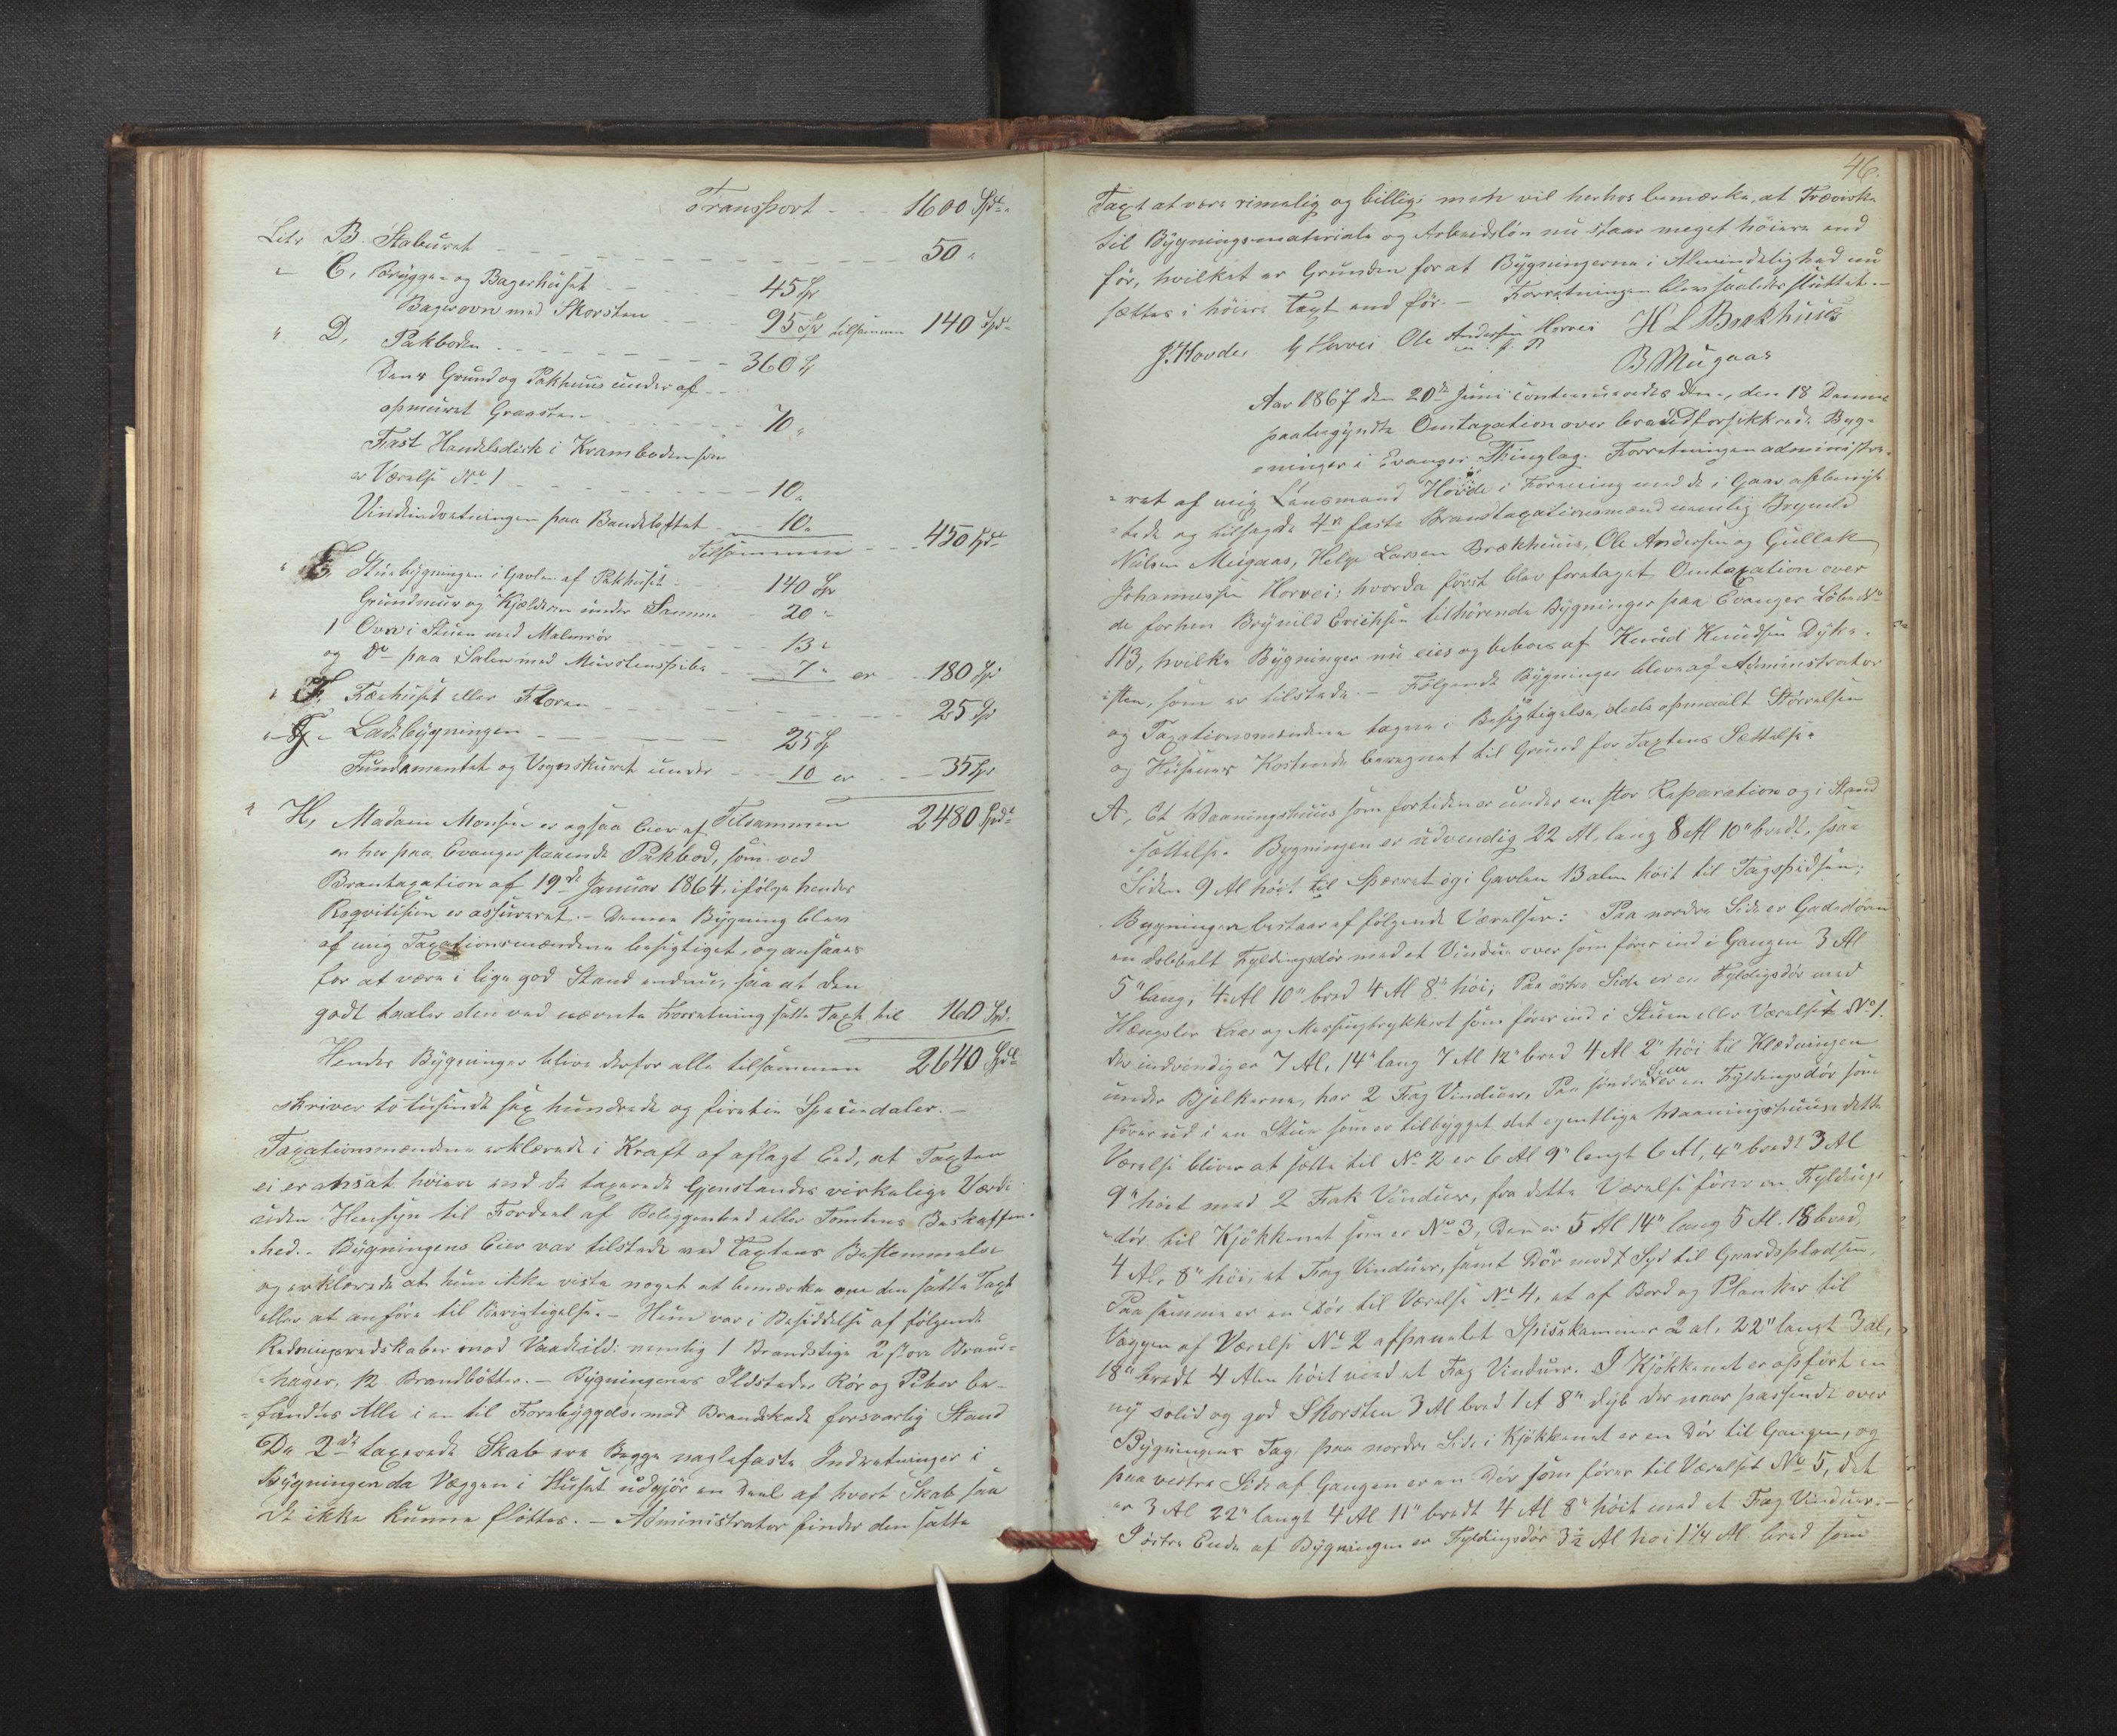 Transport - - 1600 Spd.
Litr B Staburet - - - 50 "
" C, Brygge- og Bagerhuset - - 45 Sp
Bagerovn med Skorsten - - 95 Sp tilsammen 140 Spd
" D, Pakboden - - - 360 Sp
Dens Grund og Pakhuus under af
opmuret Graasten - - - 70 "
Fast Handelsdisk i Kramboden som
er Værelse No 1 - - - 10 "
Vindeindretningen paa Bandeloftet - - 10 "
Tilsammen - - 450 Spd
" E, Stuebygningen i Gavlen af Pakhuset - - 140 Sp
Grundmur og Kjælderen under Samme - 20 "
1 Ovn i Stuen med Malmrør - - 13 "
og do paa Salen med Muurstenspibe - - 7 " er - - 180 Sp
" F, Fæehuset eller Floren - - - 25 Sp
" G - Ladebygningen - - - 25 Sp
Fundamentet og Vognskuret under - - 10 er - - 35 Sp
Tilsammen 2480 Spd
" H, Madam Monsen er ogsaa Eier af
en her paa Evanger staaende Pakbod, som ved
Brantaxation af 19de Januar 1864, ifølge hendes
Reqvisition er assureret. - Denne Bygning blev
af mig Taxationsmændene besigtiget, og ansaaes
for at være i lige god Stand endnu, saa at den
godt taaler den ved nævnte Forretning satte Taxt til 160 Spd.
Hendes Bygninger blive derfor alle tilsammen 2640 Spd
skriver to tusinde sex hundrede og firetie Speciedaler. -
Taxationsmændene erklærede i Kraft af aflagt Eed, at Taxten
ei er ansat høiere end de taxerede Gjenstandes virkelige Værdi
uden Hensyn til Fordeel af Beliggenhed eller Tomtens Beskaffen-
hed. - Bygningens Eier var tilstede ved Taxtens Bestemmelse
og erklærede at hun ikke viste noget at bemærke om den satte Taxt
eller at anføre til Berigtigelse. - Hun var i Besiddelse af følgende
Redningsredskaber mod Vaadeild: nemlig 1 Brandstige 2 store Brand-
hager, 12 Brandbøtter. - Bygningernes Ildsteder Rør og Piber be-
fandtes Alle i en til Forebyggelse mod Brandskade forsvarlig Stand
De 2de taxerede Skab ere Begge naglefaste Indretninger i
Bygningen da Væggen i Huset udgjør en Deel af hvert Skab saa
de ikke kunne fløttes. - Administrator finder den satte
46.
Taxt at være rimelig og billig: men vil herhos bemærke, at Trævirke
til Bygningsmateriale og Arbeidsløn nu staar meget høiere end
før, hvilket er Grunden for at Bygningerne i Almindelighed nu
sættes i høiere Taxt end før. - Forretningen blev saaledes sluttet. -
J. Hovde G Horvei Ole Andersen Horvei H L Brækhuus
m. p. P. B Mugaas
Aar 1867 den 20de Juni continueredes den, den 18 Dennes
paabegyndte Omtaxation over brandforsikkrede Byg-
ninger i Evanger Thinglag. Forretningen administre-
ret af mig Lensmand Hovde i Forening med de i Gave opbenys-
tede og tilsagde 4re faste Brantaxationsmænd nemlig Brynild
Nielsen Mugaas, Helge Larsen Brækhuus, Ole Andersen og Gullak
Johannessen Horvei; hvorda først blev foretaget Omtaxation over
de forhen Brynild Erichsen tilhørende Bygninger paa Evanger Løbe No
113, hvilke Bygninger nu eies og beboes af Knud Knudsen Dyke-
sten, som er tilstede. - Følgende Bygninger bleve af Administrator
og Taxationsmændene tagne i Besigtigelse, deels opmaalt Størrelsen
og Husenes Kostende beregnet til Grund for Taxtens Sættelse.
A, Et Vaaningshuus som fortiden er under en stor Reparation og i Stand
sættelse. Bygningen er udvendig 22 Al. lang 8 Al 10" bredt, paa
Siden 9 Al høit til Spærret og i Gavlen 13 alen høit til Tagspidsen;
Bygningen bestaar af følgende Værelser: Paa nordre Side er Gadedøren
en dobbelt Fyldingsdør med et Vindue over som fører ind i Gangen 3 Al
5" lang, 4 Al 10" bred 4 Al 8" høi; Paa østre Side er en Fyldigsdør med
Hængsler Laas og Messingtrykkert som fører ind i Stuen eller Værelset No 1.
der indvendig er 7 Al, 14" lang 7 Al 12" bred 4 Al 2" høi til Klædningen
under Bjelkerne, har 2 Fag Vinduer, Paa søndre Side er en Fyldingsdør som
fører ud i en Stue som er tilbygget det egentlige Vaaningshuus dette
Værelse bliver at sætte til No 2 er 6 Al 9" langt 6 Al, 4" bredt 3 Al
9" høit med 2 Fak Vinduer, fra dette Værelse fører en Fyldings
dør til Kjøkkenet som er No 3, Den er 5 Al 14" lang 5 Al. 18 bred,
4 Al, 8" høi; et Fag Vinduer, samt Dør mod Syd til Gaardspladsen,
Paa samme er en Dør til Værelse No 4, et af Bord og Planker til
Væggen af Værelse No 2 afpanelet Spisekammer 2 al, 22" langt 3 al,
18" bredt 4 Alen høit med et Fag Vinduer. I Kjøkkenet er opført en
ny solid og god Skorsten 3 Al bred 1 A 8" dyb der naar passende over
Bygningens Tag. paa nordre Side i Kjøkkenet er en Dør til Gangen, og
paa vestre Side af Gangen er en Dør som fører til Værelset No 5, det
er 3 Al 22" langt 4 Al 11" bredt 4 Al 8" høit med et Fag Vinduer. -
I østre Ende af Bygningen er Fyldingsdør 3½ Al høi 1¼ Al bred som